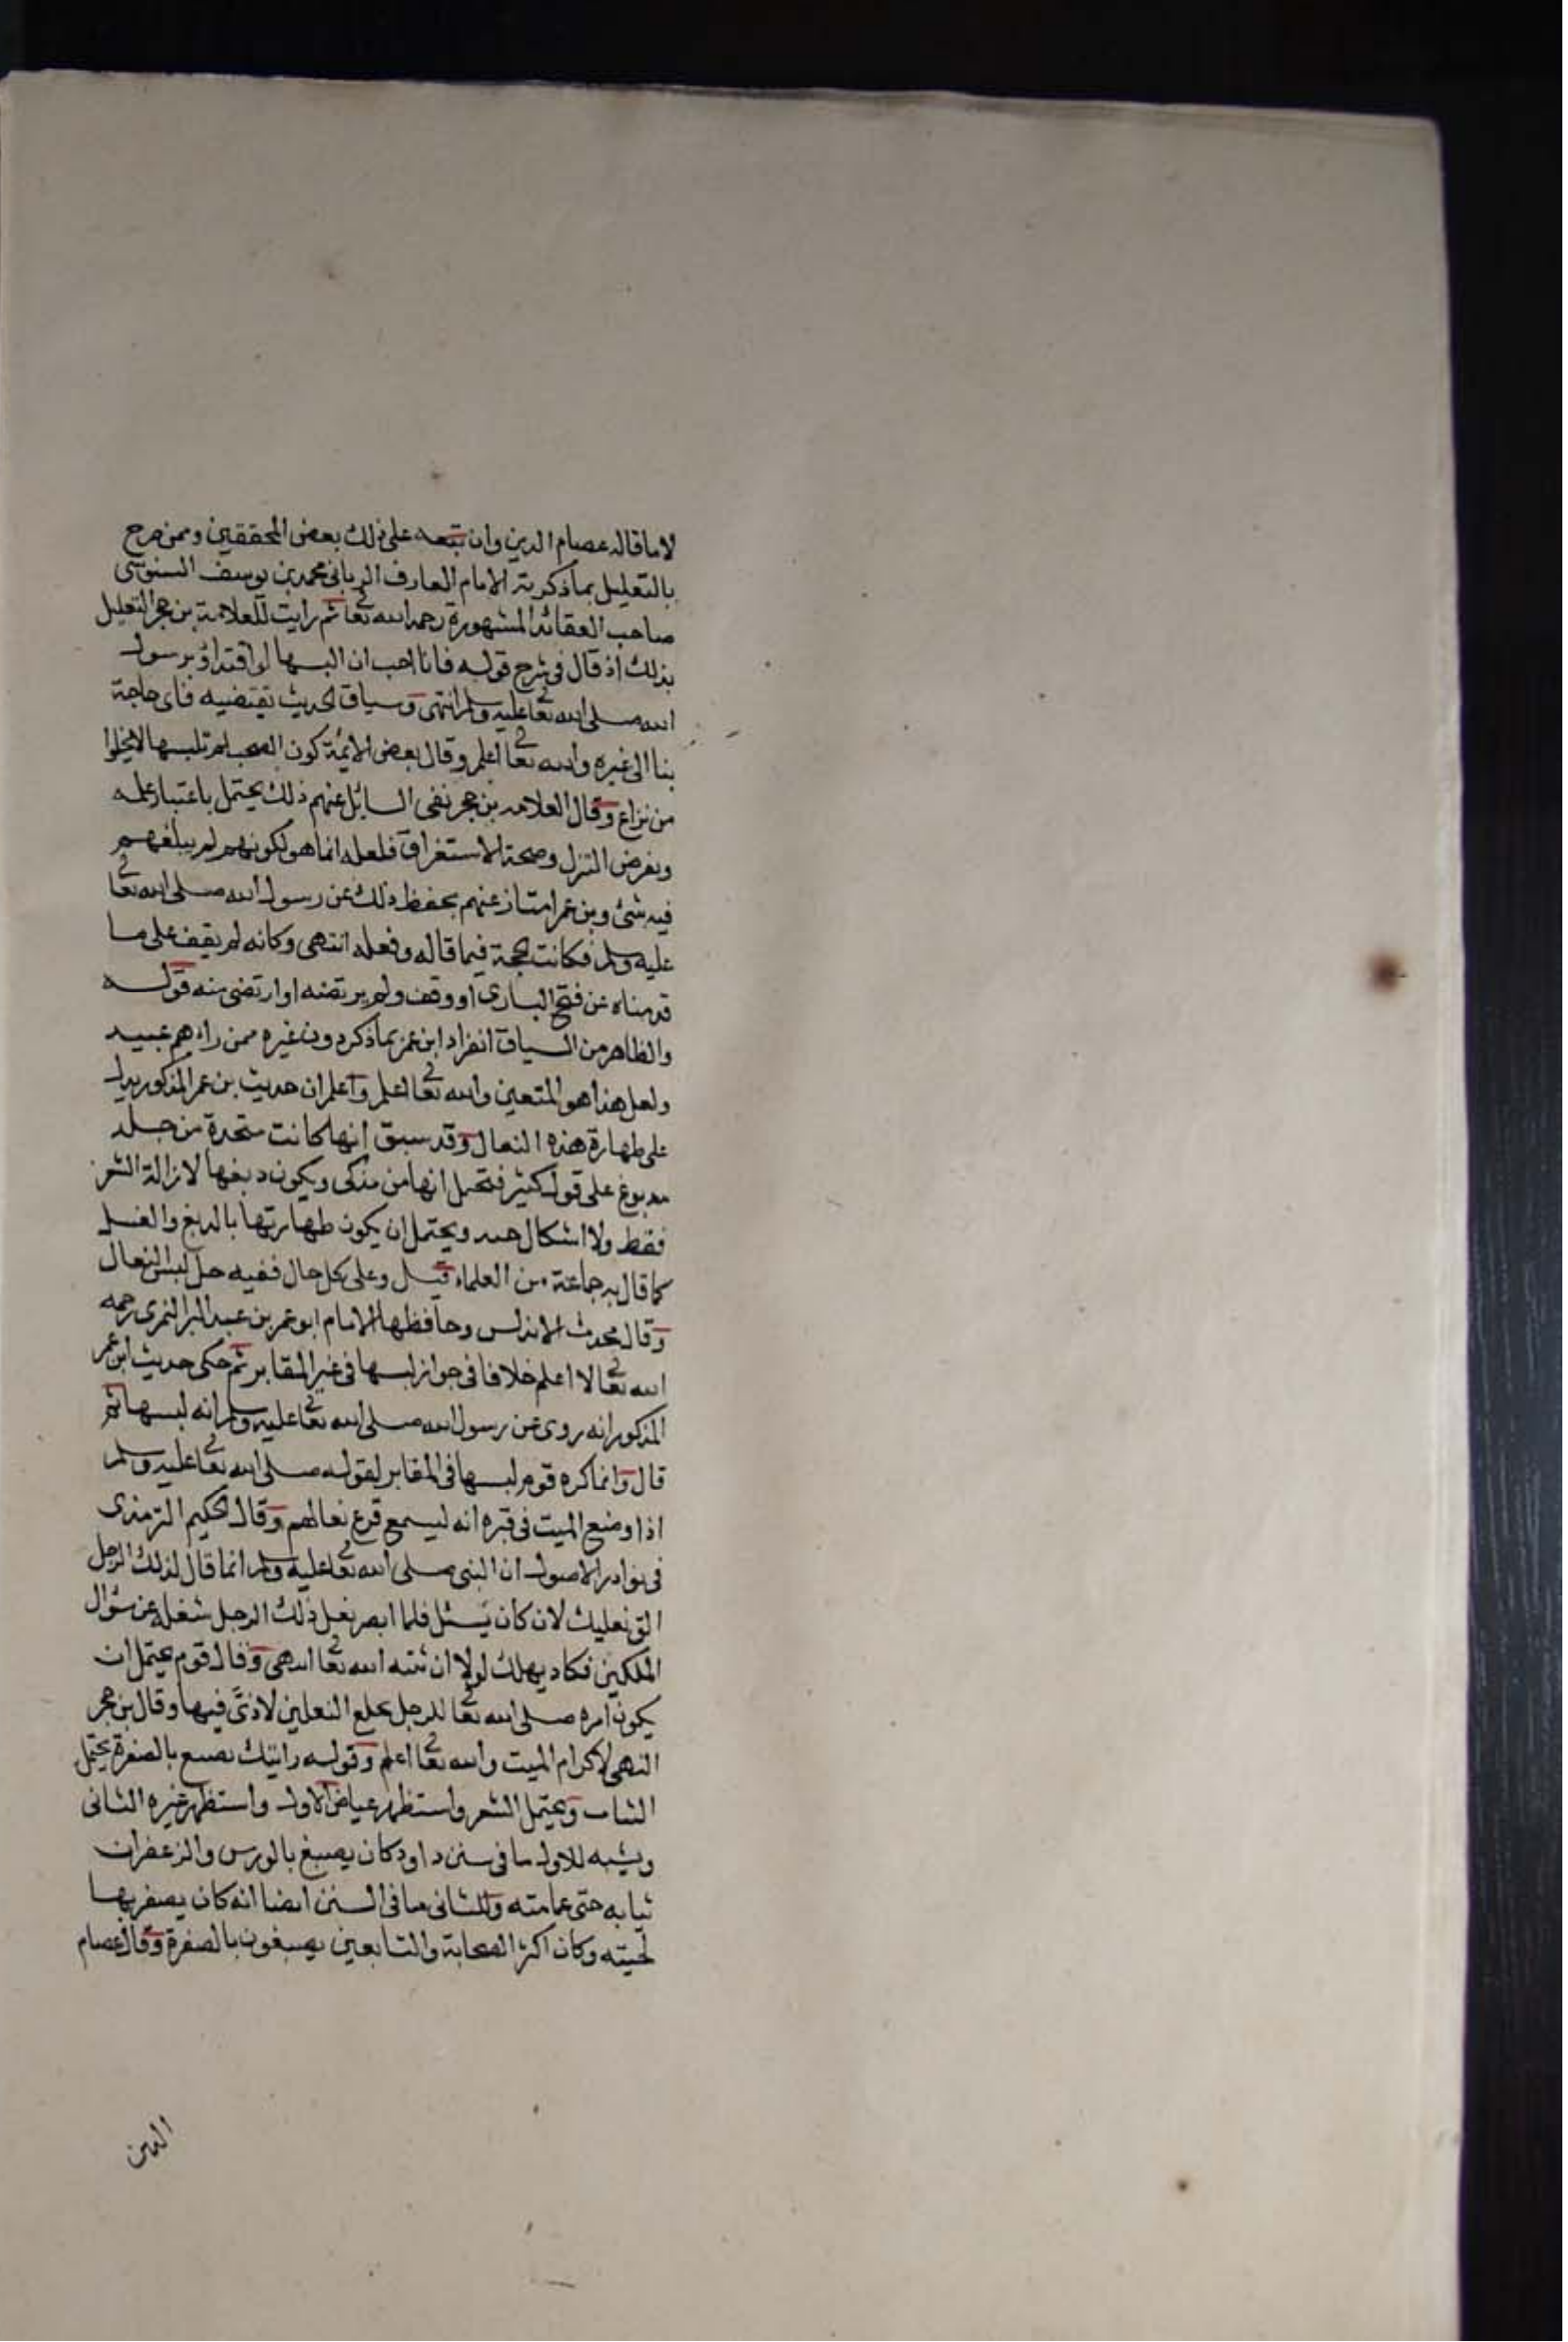 لا ما قاله عصام الدين وان تبعه على ذلك بعض المحققين وممن صرح
بالتعليل بما ذكرته الامام العارف الرباني محمد بن يوسف السنوسي
صاحب العقائد المشهورة رحمه الله تعا ثم رايت للعلامة بن حجر التعليل
بذلك اذ قال في شرح قوله فانا احب ان البسها لو اقتداؤ برسول
الله صلى الله تعا عليه وسلم انتهى وسياق الحديث يقتضيه فاى حاجة
بنا الى غيره والله تعا اعلم وقال بعض الائمة كون الصحب لم تلبسها لا يخلوا
من نزاع وقال العلامه بن حجر نفى السائل عنهم ذلك يحتمل باعتبار علمه
وبفرض التنزل وصحة الاستغراق فلعله انما هو لكونهم لم يبلغهم
فيه شئ وبن عمر امتاز عنهم بحفظ ذلك عن رسول الله صلى الله تعا
عليه وسلم فكانت حجة فيما قاله وفعله انتهى وكانه لم يقف على ما
قدمناه عن فتح البارى او وقف ولم يرتضه او ارتضى منه قوله
والظاهر من السياق انفراد ابن عمر بما ذكر دون غيره ممن راهم عبيد
ولعل هذا هو المتعين والله تعا اعلم واعلم ان حديث بن عمر المذكور يدل
على طهارة هذه النعال وقد سبق انها كانت متخدة من جلد
مدبوغ على قول كثير فتحمل انها من مذكى ويكون دبغها لازالة الشعر
فقط ولا اشكال ويحتمل ان يكون طهارتها بالدبغ والغسل
كما قال به جماعة من العلماء قيل وعلى كل حال ففيه حل لبس النعال
وقال محدث الاندلس وحافظها الامام ابو عمر بن عبد البر النمرى رحمه
الله تعا لا اعلم خلافا فى جواز لبسها فى غير المقابر ثم حكى حديث ابن عمر
المذكور انه روى عن رسول الله صلى الله تعا عليه وسلم انه لبسها ثم
قال وانما كره قوم لبسها فى المقابر لقوله صلى الله تعا عليه وسلم
اذا وضع الميت فى قبره انه ليسمع قرع نعالهم وقال الحكيم الترمذى
فى نوادر الاصول ان النبى صلى الله تعا عليه وسلم انما قال لذلك الرجل
الق نعليك لان كان يسئل فلما ابصر نعل ذلك الرجل شغله عن سؤال
الملكين فكاد يهلك لولا ان ثبته الله تعا انتهى وقال قوم يحتمل ان
يكون امره صلى الله تعا للرجل بخلع النعلين لاذىً فيها وقال بن حجر
النهى لاكرام الميت والله تعا اعلم وقوله رايتك تصبع بالصفرة يحتمل
الثياب ويحتمل الشعر واستظهر عياض الاول واستظهر غيره الثانى
ويشبه للاول ما فى سنن داود كان يصبغ بالورس والزعفران
ثيابه حتى عمامته وللثانى ما فى السنن ايضا انه كان يصفر بها
لحيته وكان اكثر الصحابة والتابعين يصبغون بالصفرة وقال عصام
الدين